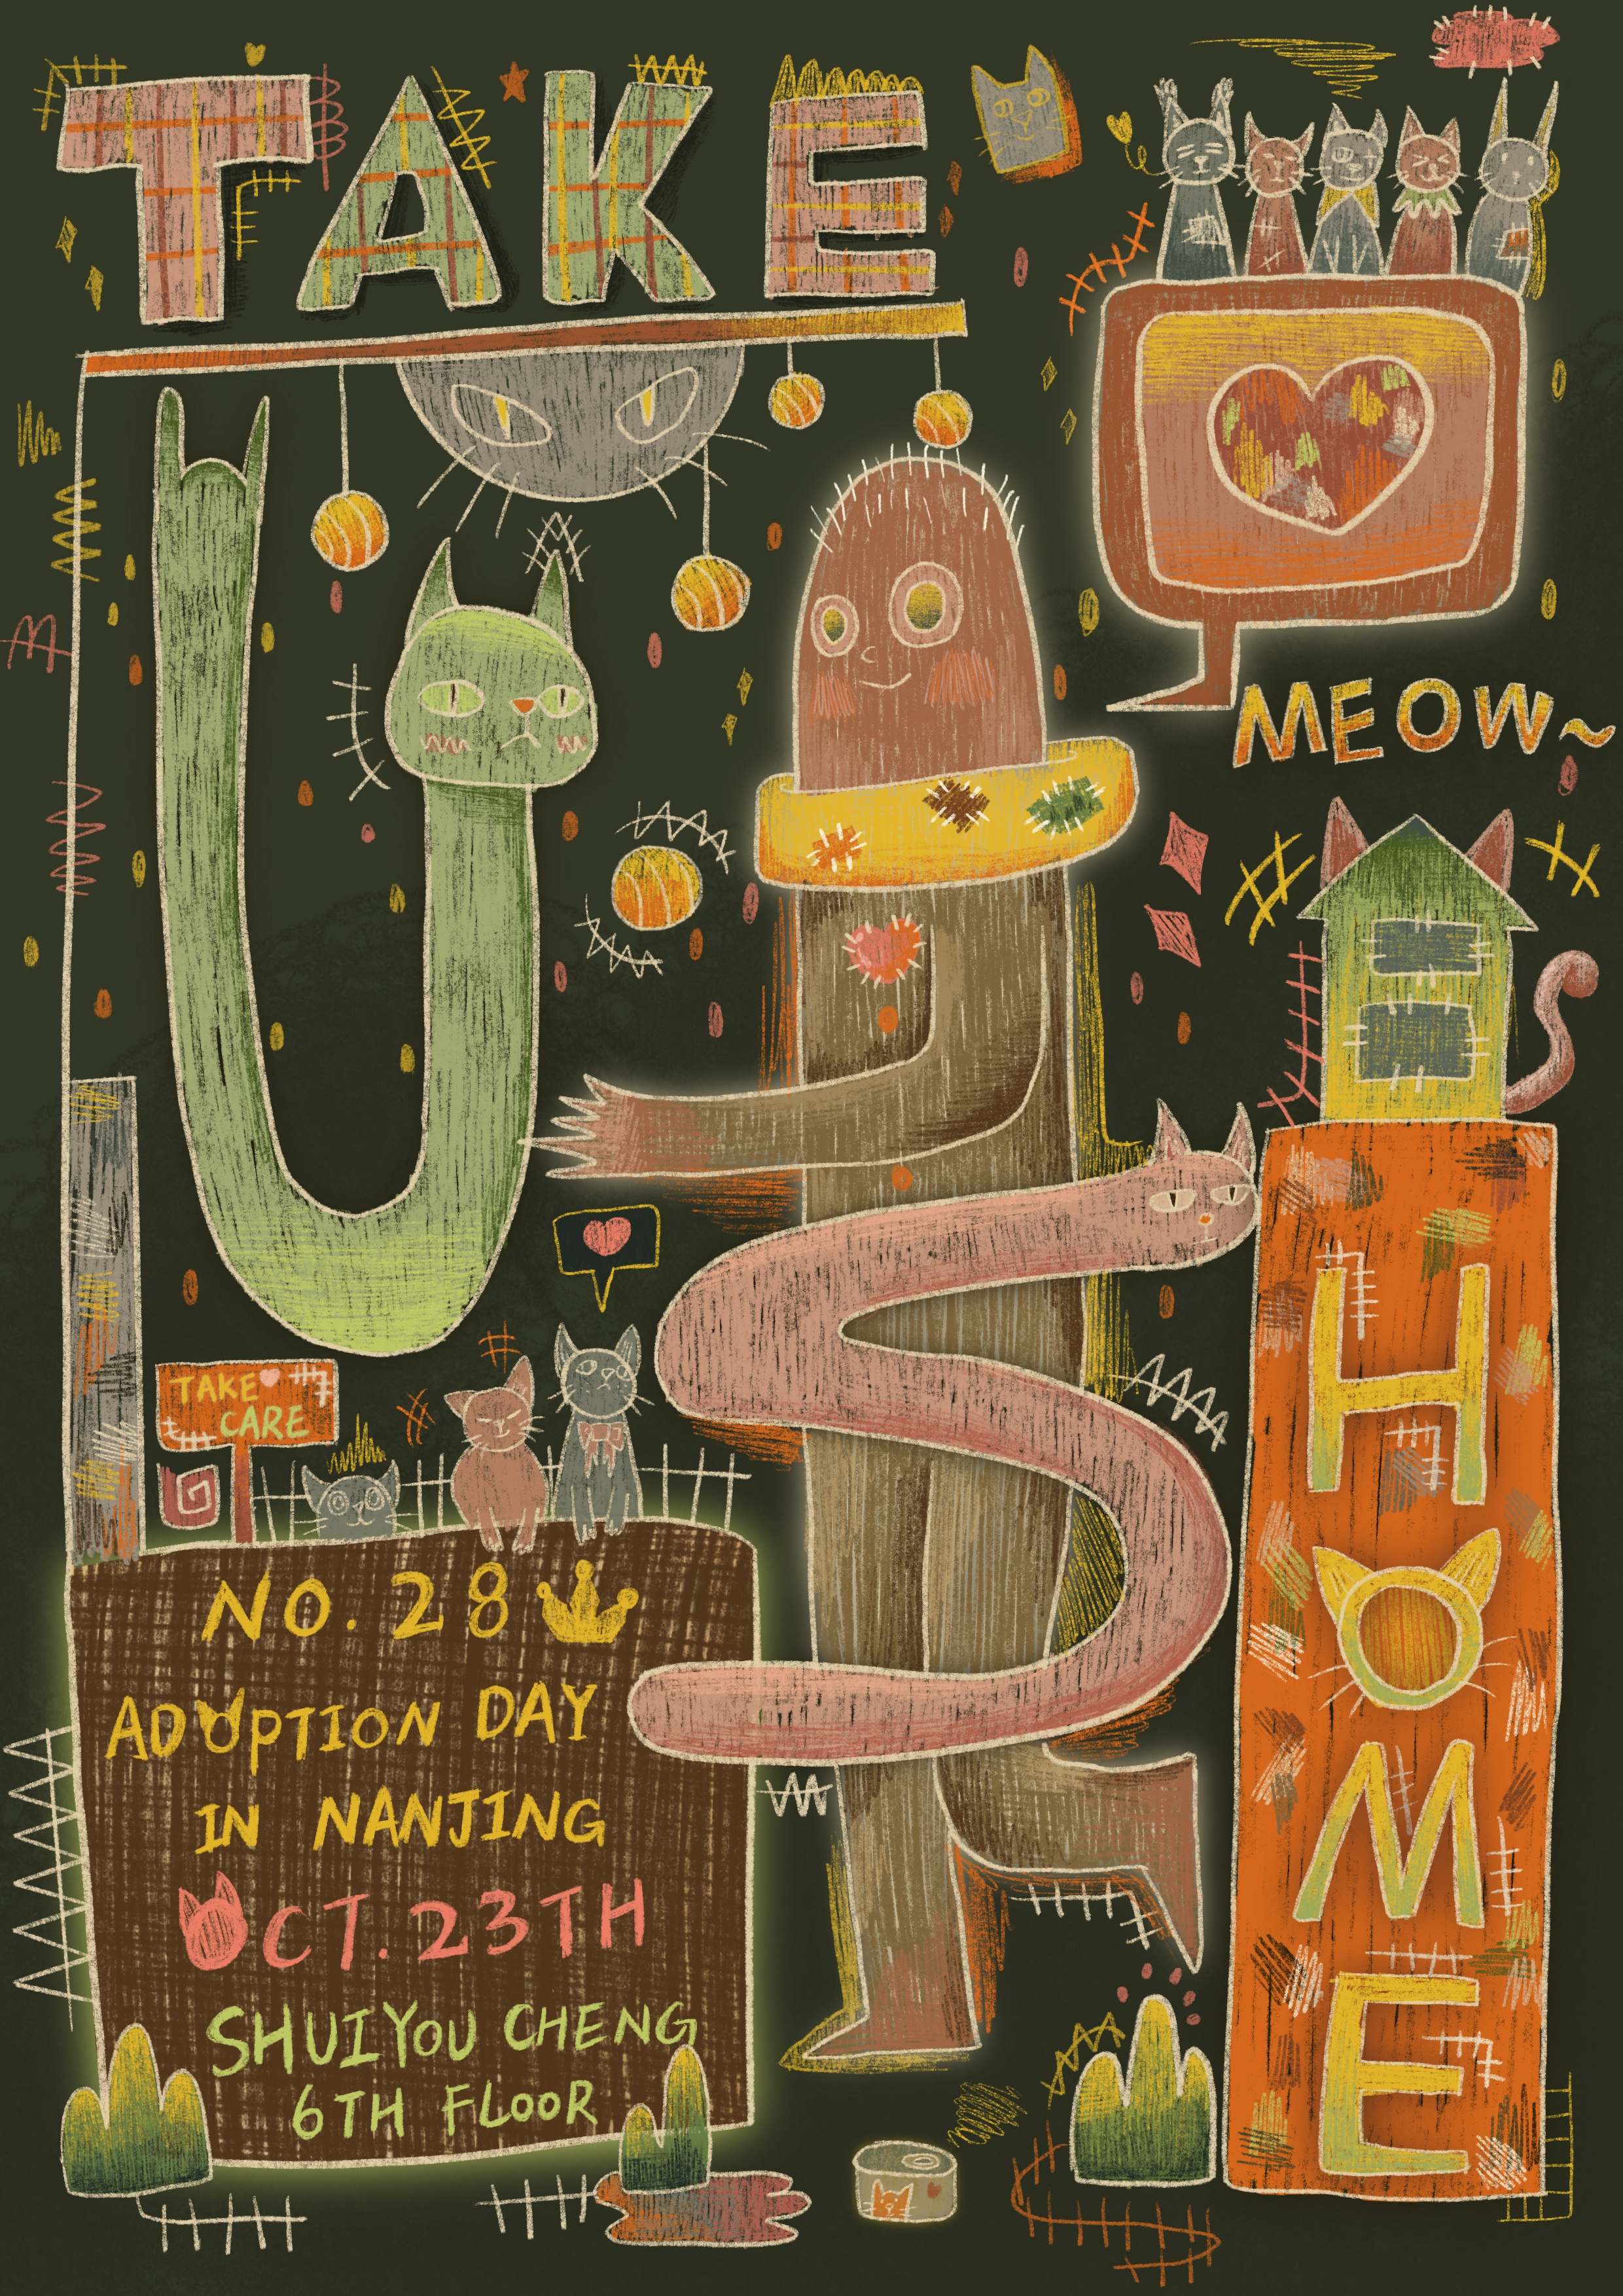 TAKE
US
HOME
MEOW~
TAKE
CARE
NO. 28
ADOPTION DAY
IN NANJING
OCT. 23TH
SHUIYOU CHENG
6TH FLOOR